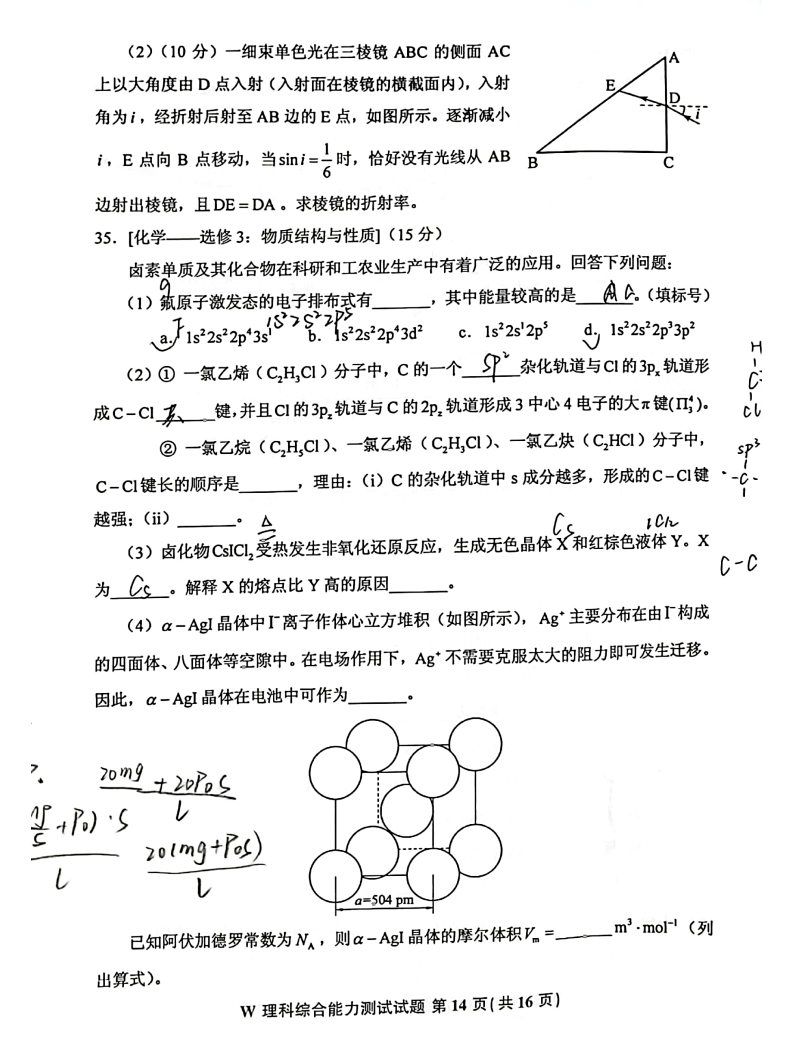 （2）（10 分）一细束单色光在三棱镜 ABC 的侧面 AC
上以大角度由 D 点入射（入射面在棱镜的横截面内），入射
角为 i，经折射后射至 AB 边的 E 点，如图所示。逐渐减小
i，E 点向 B 点移动，当 sin i = 1/6 时，恰好没有光线从 AB
边射出棱镜，且 DE = DA 。求棱镜的折射率。
A
E
D
i
B
C
35．[化学——选修 3：物质结构与性质]（15 分）
卤素单质及其化合物在科研和工农业生产中有着广泛的应用。回答下列问题：
9
（1）氟原子激发态的电子排布式有______，其中能量较高的是______。（填标号）
1s²2s²2p⁵
a. 1s²2s²2p⁴3s¹ b. 1s²2s²2p⁴3d² c. 1s²2s¹2p⁵ d. 1s²2s²2p³3p²
（2）① 一氯乙烯（C₂H₃Cl）分子中，C 的一个 sp² 杂化轨道与 Cl 的 3pₓ 轨道形
成 C－Cl ______键，并且 Cl 的 3p_z 轨道与 C 的 2p_z 轨道形成 3 中心 4 电子的大 π 键(Π₃⁴)。
H
C
Cl
② 一氯乙烷（C₂H₅Cl）、一氯乙烯（C₂H₃Cl）、一氯乙炔（C₂HCl）分子中，
C－Cl 键长的顺序是______，理由：（i）C 的杂化轨道中 s 成分越多，形成的 C－Cl 键
越强；（ii）______。
sp³
-C-
△
Cs
ICl₂
（3）卤化物 CsICl₂ 受热发生非氧化还原反应，生成无色晶体 X 和红棕色液体 Y。X
为 Cs 。解释 X 的熔点比 Y 高的原因______。
C-C
（4）α－AgI 晶体中 I⁻ 离子作体心立方堆积（如图所示），Ag⁺ 主要分布在由 I⁻ 构成
的四面体、八面体等空隙中。在电场作用下，Ag⁺ 不需要克服太大的阻力即可发生迁移。
因此，α－AgI 晶体在电池中可作为______。
20mg + 20P₀S
L
+P₀)·S
L
20(mg+P₀S)
L
a=504 pm
已知阿伏加德罗常数为 N_A，则 α－AgI 晶体的摩尔体积 V_m =______ m³·mol⁻¹（列
出算式）。
W 理科综合能力测试试题 第 14 页(共 16 页)